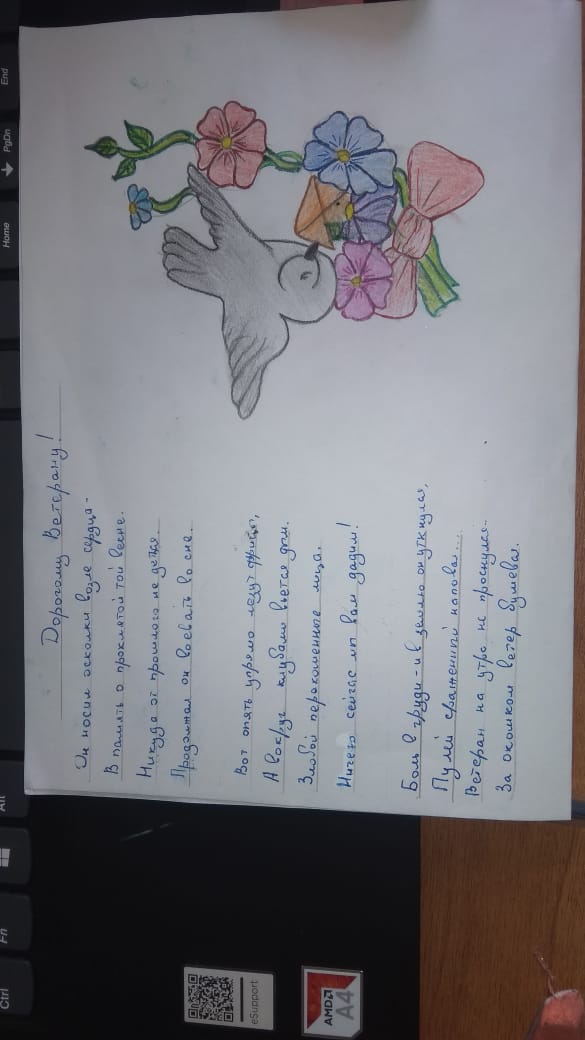 Дорогому Ветерану!
Он носил осколки возле сердца -
В память о проклятой той весне.
Никуда от прошлого не деться
Продолжал он воевать во сне.
Вот опять упрямо лезут фрицы,
А вокруг клубами вьется дым.
Злобой перекошенные лица.
Ничего сейчас мы вам дадим!
Боль в груди - и в землю он уткнулся,
Пулей сраженный наповал...
Ветеран на утро не проснулся.
За окошком ветер бушевал.
End
PgDn
Home
Alt
Fn
Ctrl
eSupport
AMD
A4